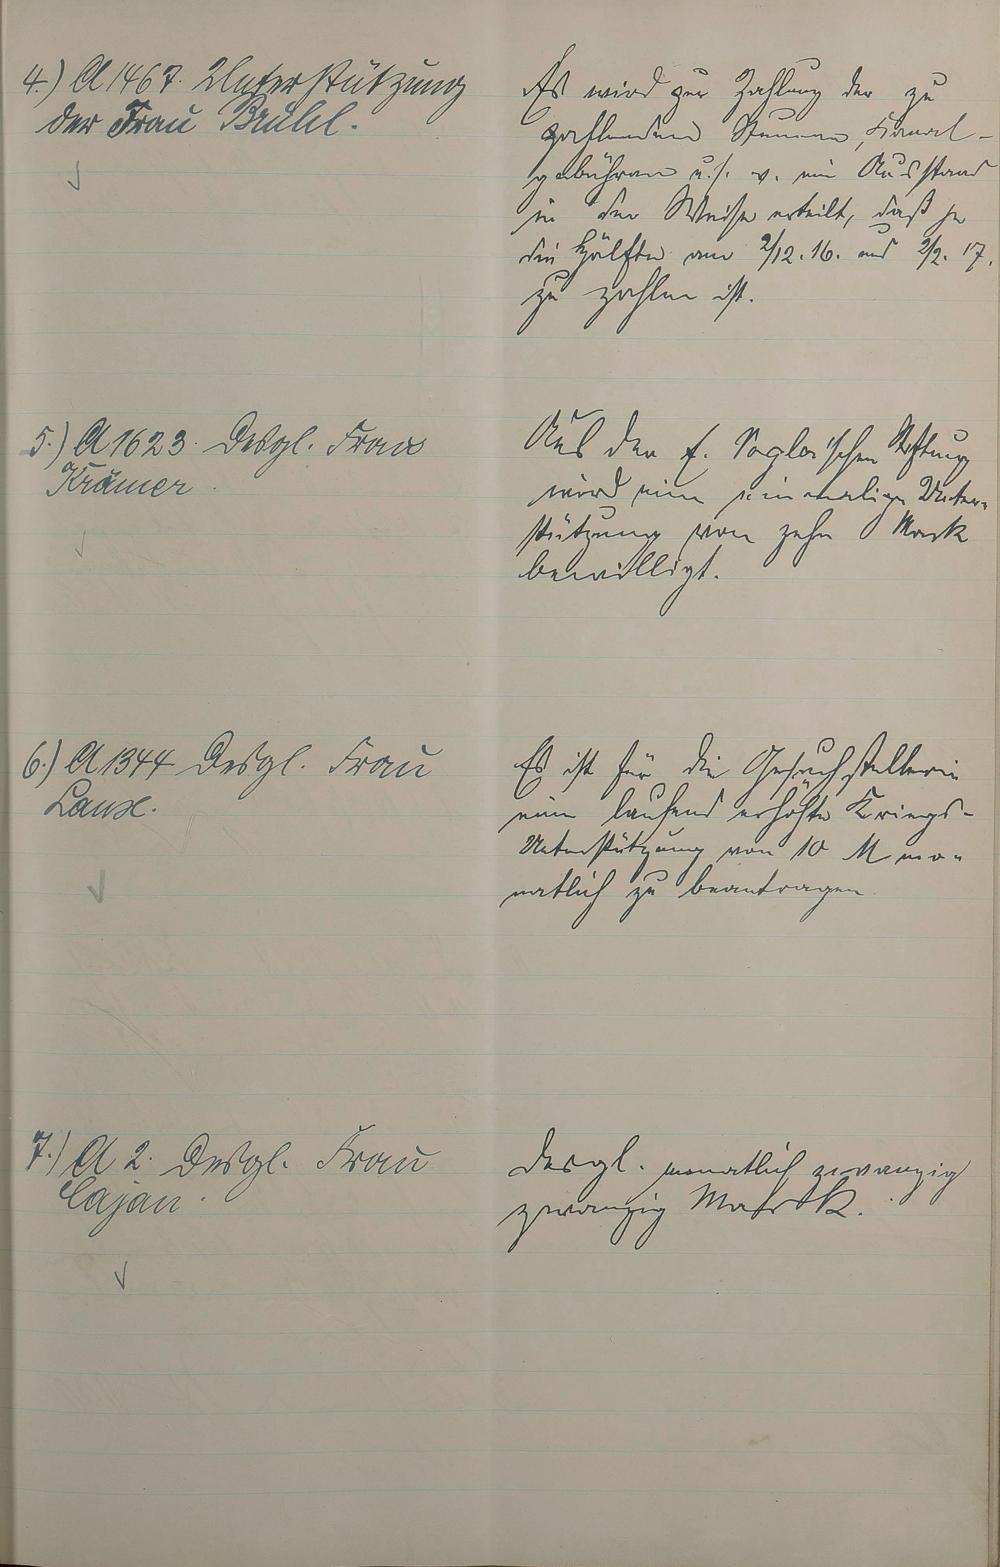 4.) A 1467. Unterstützung
der Frau Brühl.
Es wird zur Zahlung der zu
zahlenden Steuern, Kanal-
gebühren u.s.w. ein Ausstand
in der Weise erteilt, daß je
die Hälfte am 2/12.16. und 2/2.17.
zu zahlen ist.
5.) A 1623. Desgl. Frau
Krämer.
Aus der f. Stiftung
wird eine einmalige Unter-
stützung von zehn Mark
bewilligt.
6.) A 1344 Desgl. Frau
Lanse.
Es ist für die Gesuchstellerin
eine laufend erhöhte Kriegs-
Unterstützung von 10 M mo-
natlich zu beantragen.
7.) A 2. Desgl. Frau
Cajan.
Desgl. monatlich zwanzig
zwanzig Mark.